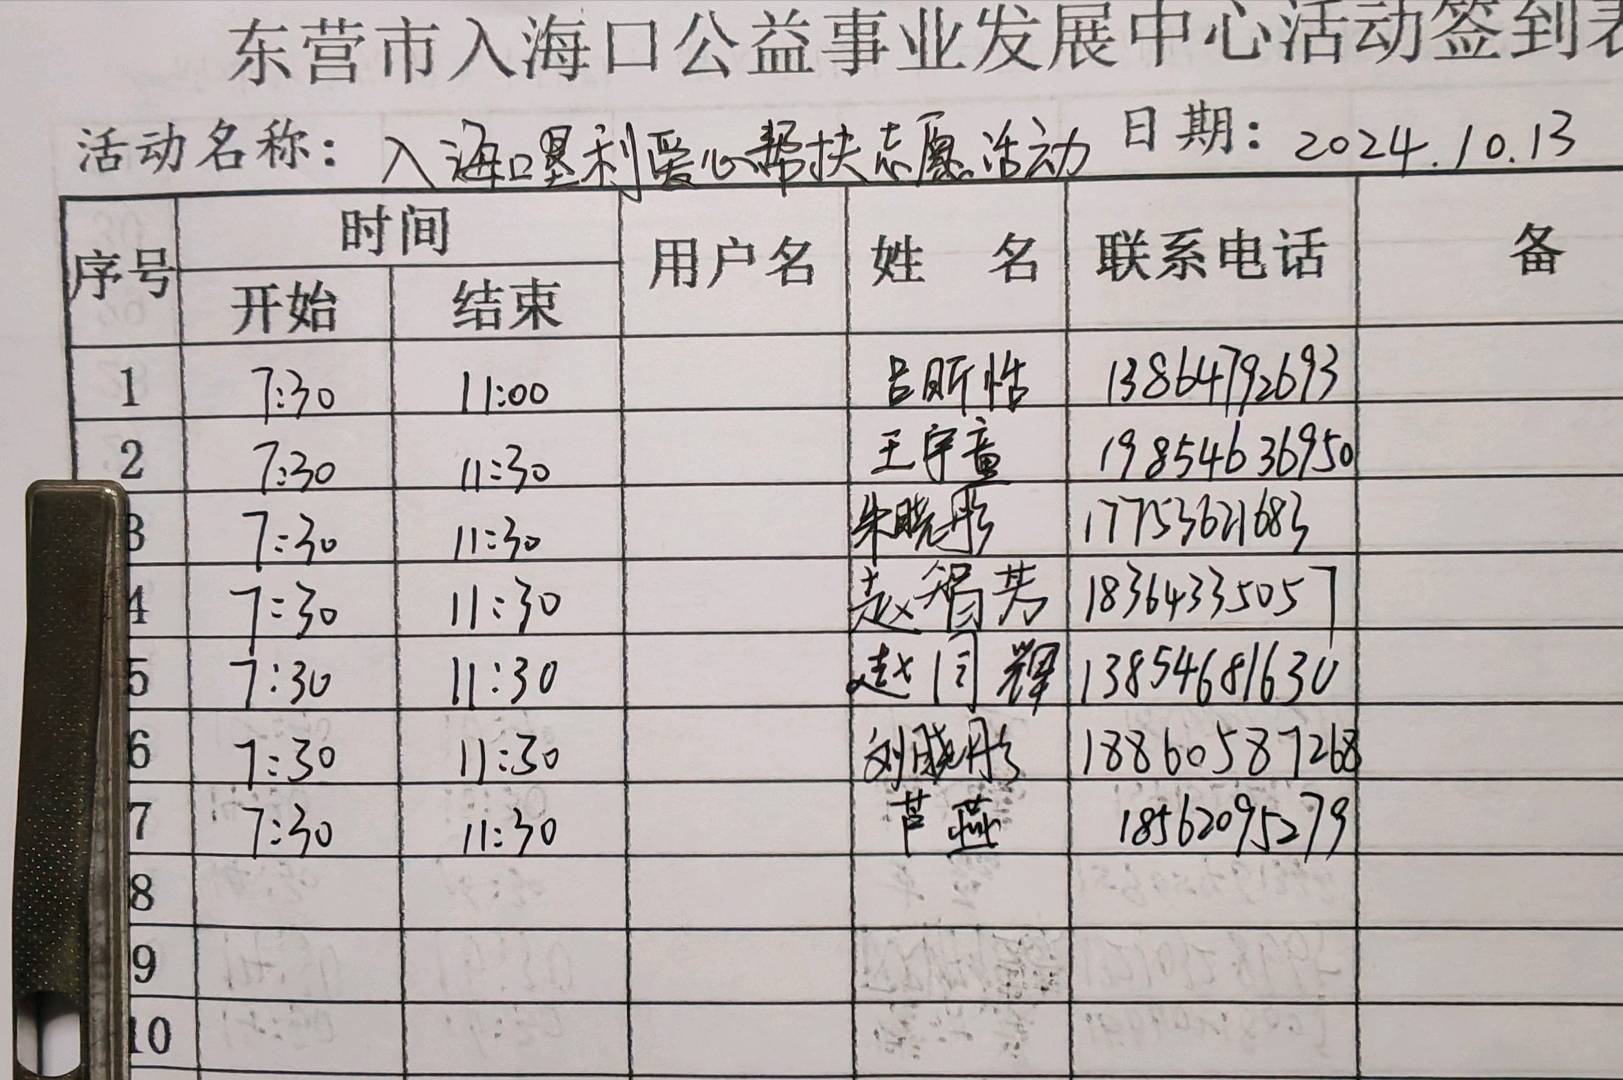 东营市入海口公益事业发展中心活动签到表
活动名称：入海口垦利爱心帮扶志愿活动 日期：2024.10.13
序号 时间 用户名 姓 名 联系电话 备
开始 结束
1 7:30 11:00 吕昕恬 13864792693
2 7:30 11:30 王宇童 19854636950
3 7:30 11:30 朱晓彤 17753621683
4 7:30 11:30 赵 芳 18364335057
5 7:30 11:30 赵闫辉 13854681630
6 7:30 11:30 刘晓彤 18860587268
7 7:30 11:30 芦燕 18562095279
8
9
10